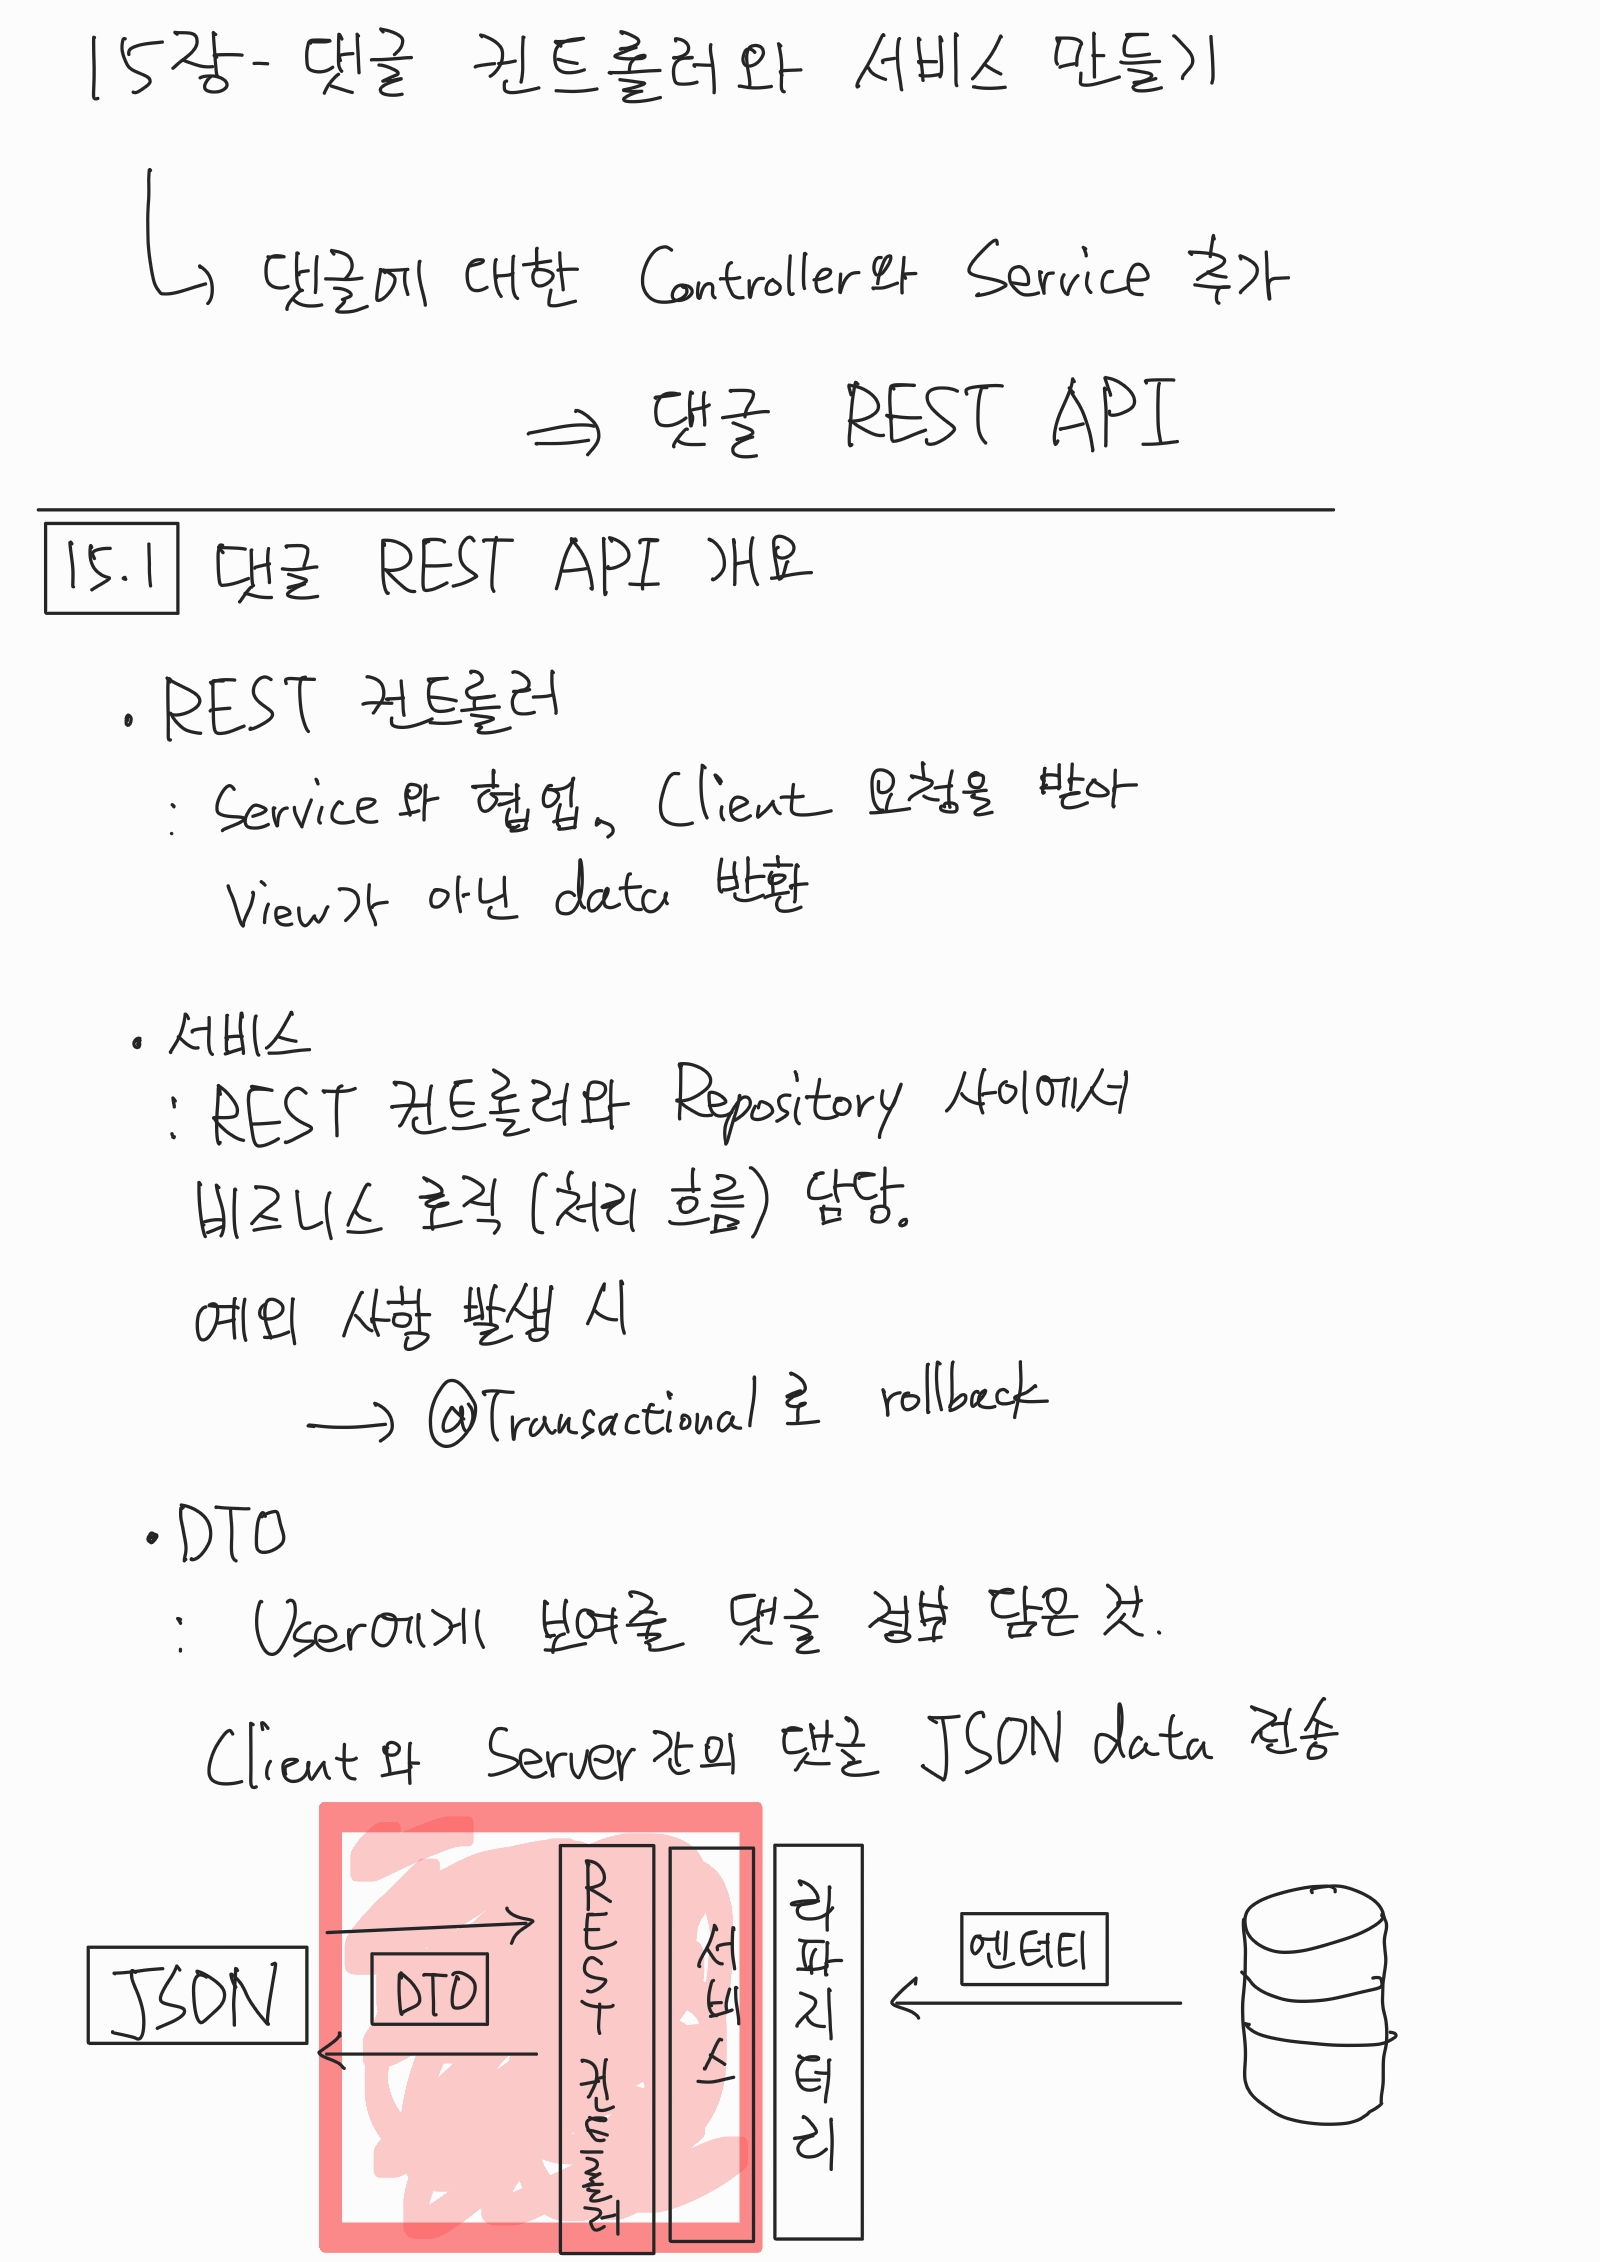 15장 - 댓글 컨트롤러와 서비스 만들기
댓글에 대한 Controller와 Service 추가
⇒ 댓글 REST API
15.1 댓글 REST API 개요
· REST 컨트롤러
: Service와 협업, Client 요청을 받아
View가 아닌 data 반환
· 서비스
: REST 컨트롤러와 Repository 사이에서
비즈니스 로직 (처리 흐름) 담당.
예외 사항 발생 시
→ @Transactional로 rollback
· DTO
: User에게 보여줄 댓글 정보 담은 것.
Client와 Server간의 댓글 JSON data 전송
JSON
DTO
REST 컨트롤러
서비스
리파지터리
엔티티